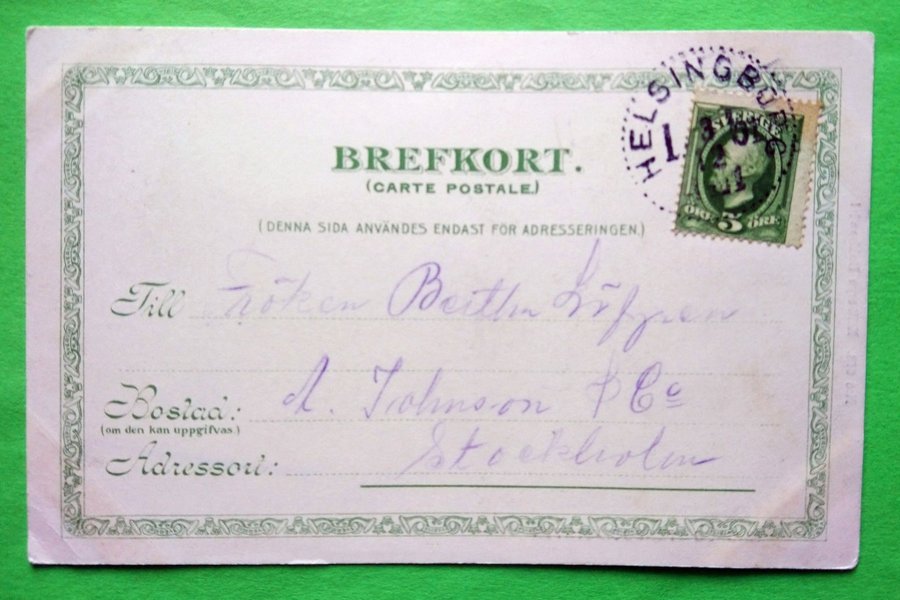 BREFKORT.
(CARTE POSTALE.)
(DENNA SIDA ANVÄNDES ENDAST FÖR ADRESSERINGEN.)
HELSINGBORG
SVERIGE
ÖRE 5 ÖRE
Till Fröken Bertha
Bostad: A. Johnson & Co
(om den kan uppgifvas.)
Adressort: Stockholm